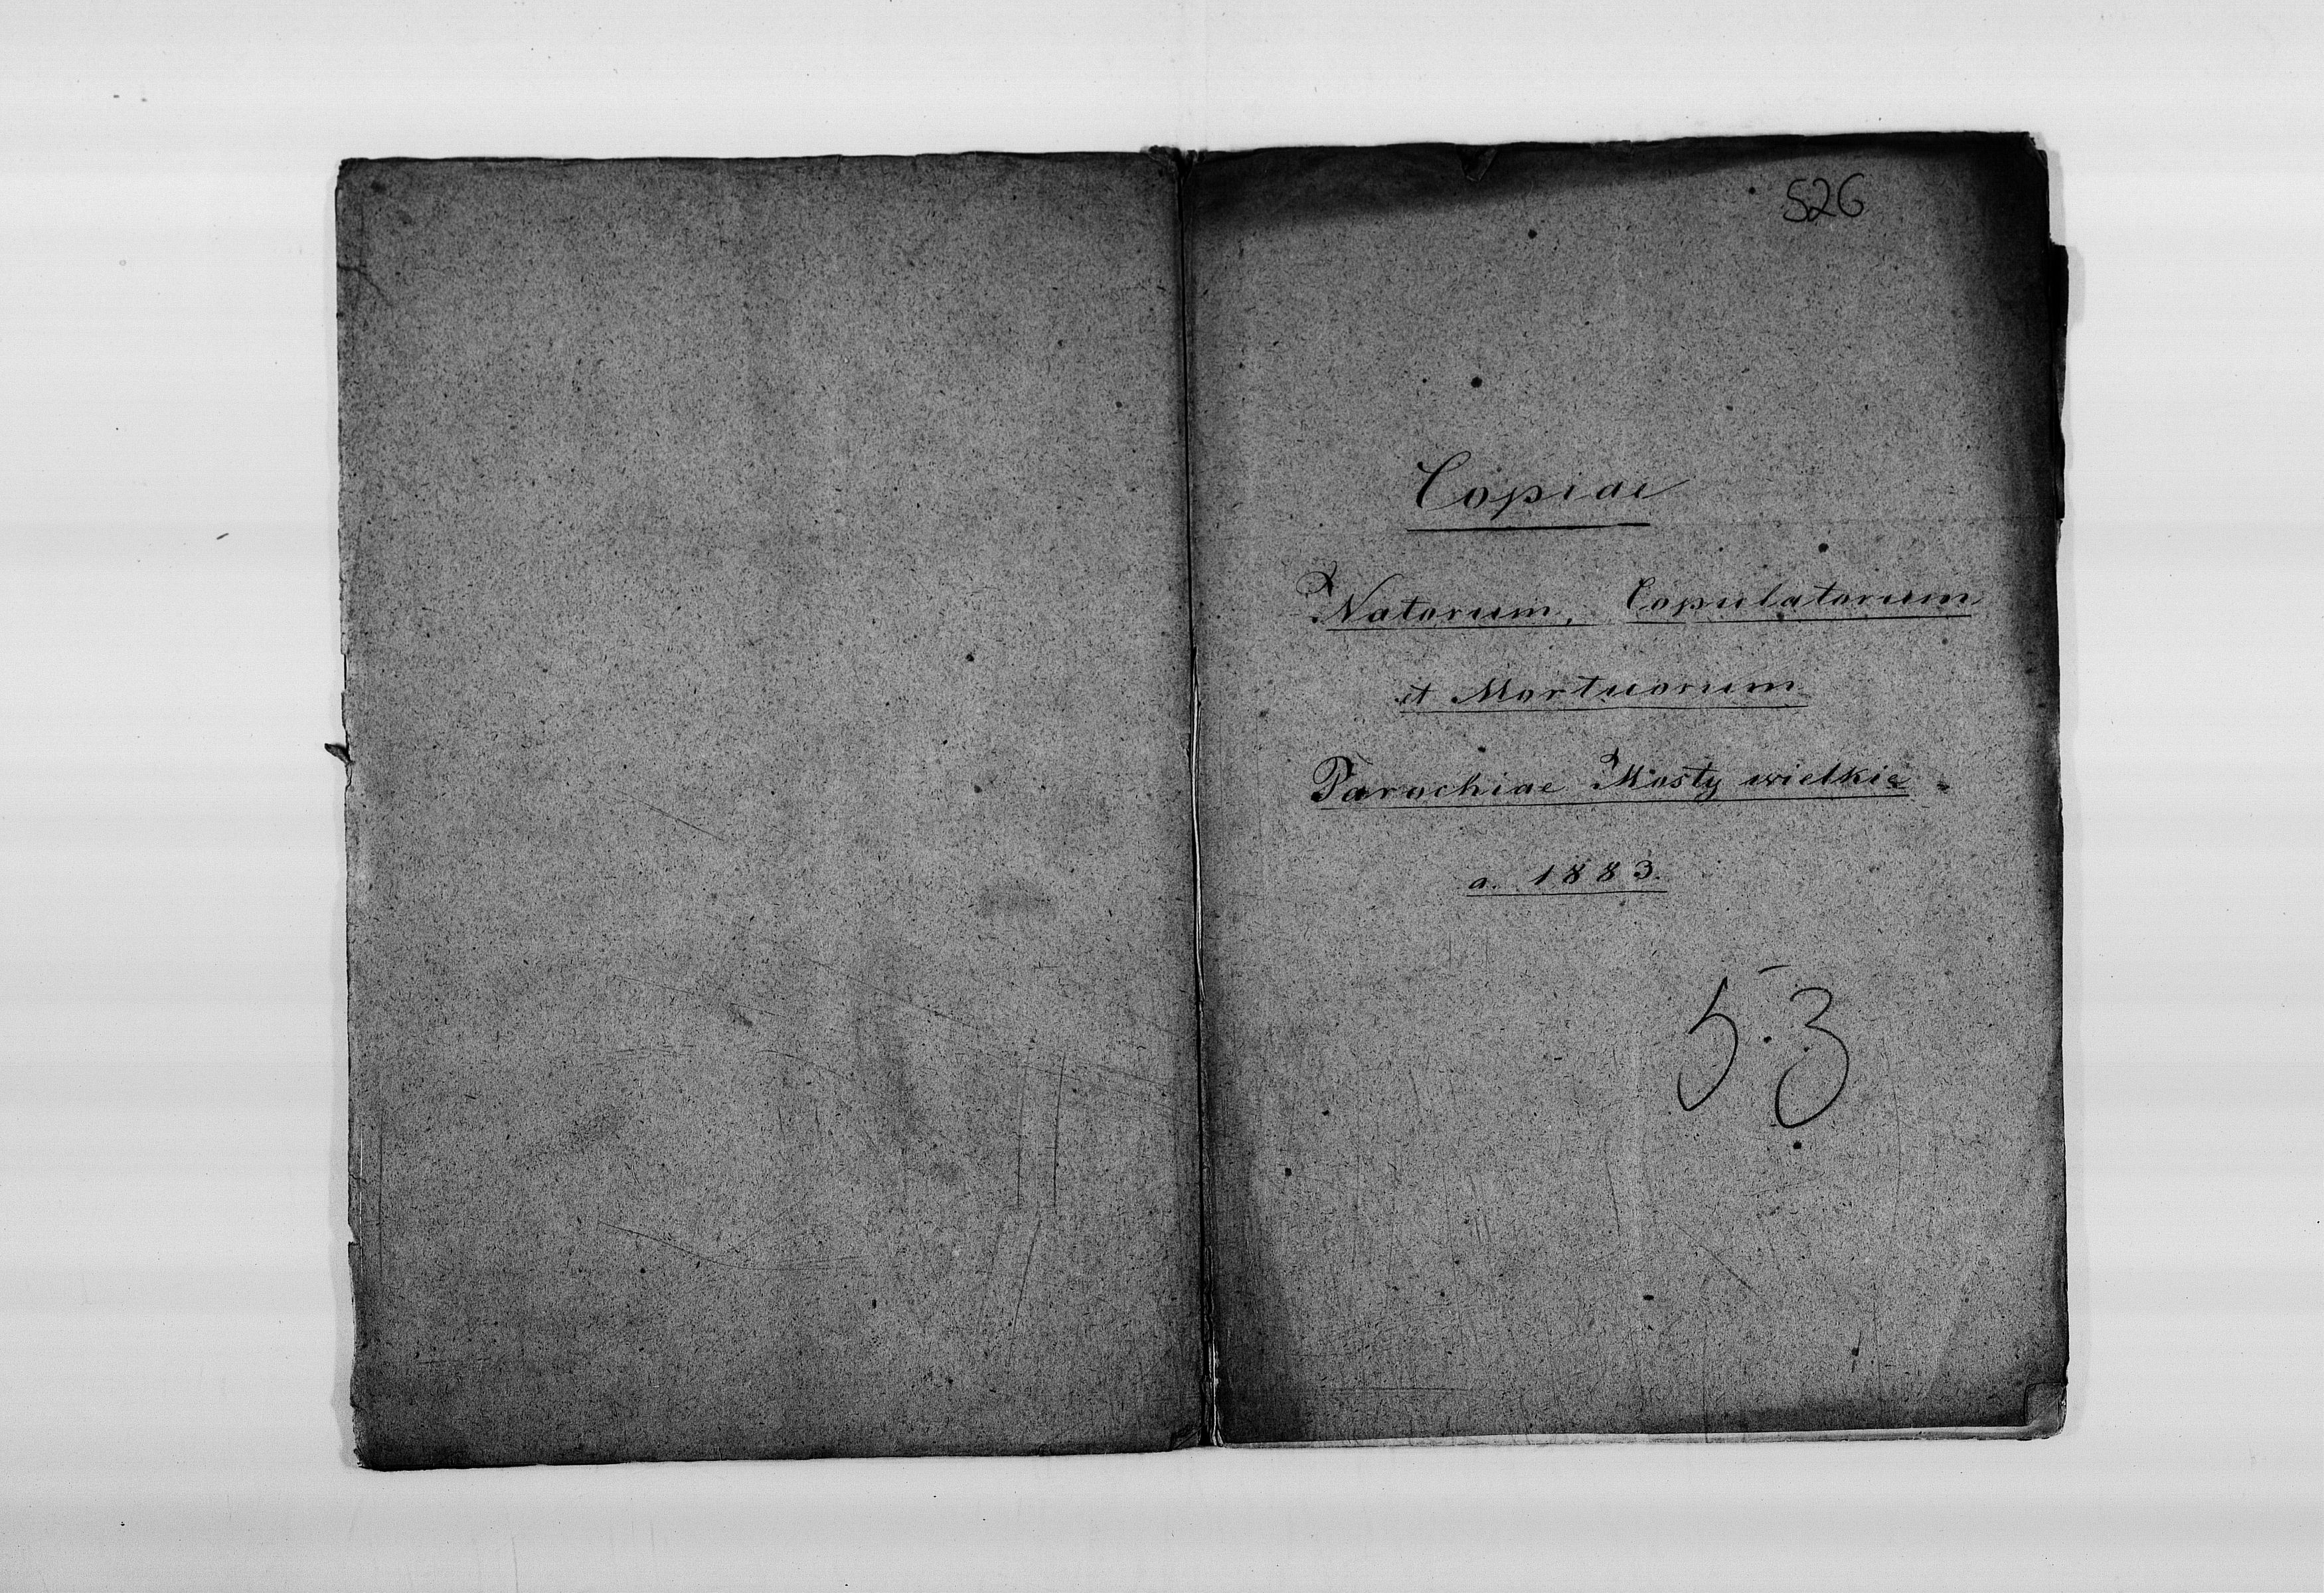 526
Copiae
Natorum, Copulatorum
et Mortuorum
Parochiae Mosty wielkie
a. 1883.
53